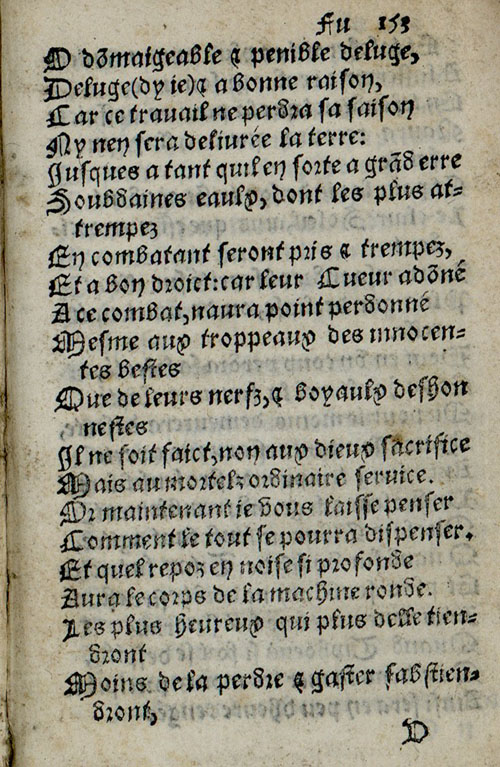 Fu 153
O dõmaigeable & penible deluge,
Deluge(dy ie)& a bonne raison,
Car ce travail ne perdra sa saison
Ny nen sera deliurée la terre:
Jusques a tant quil en sorte a grãd erre
Soubdaines eaulx, dont les plus at-
trempez
En combatant seront pris & trempez,
Et a bon droict:car leur Cueur adõné
A ce combat,naura point perdonné
Mesme aux troppeaux des innocen-
tes bestes
Que de leurs nerfz,& boyaulx deshon
nestes
Il ne soit faict,non aux dieux sacrifice
Mais au mortelz ordinaire service.
Or maintenant ie vous laisse penser
Comment le tout se pourra dispenser.
Et quel repoz en noise si profonde
Aura le corps de la machine ronde.
Les plus heureux qui plus delle tien-
dront
Moins de la perdre & gaster sabstien-
dront,
D